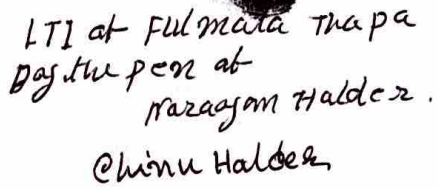 LTI at Fulmata Thapa
By the pen at
Narayan Halder.
Chinu Halder